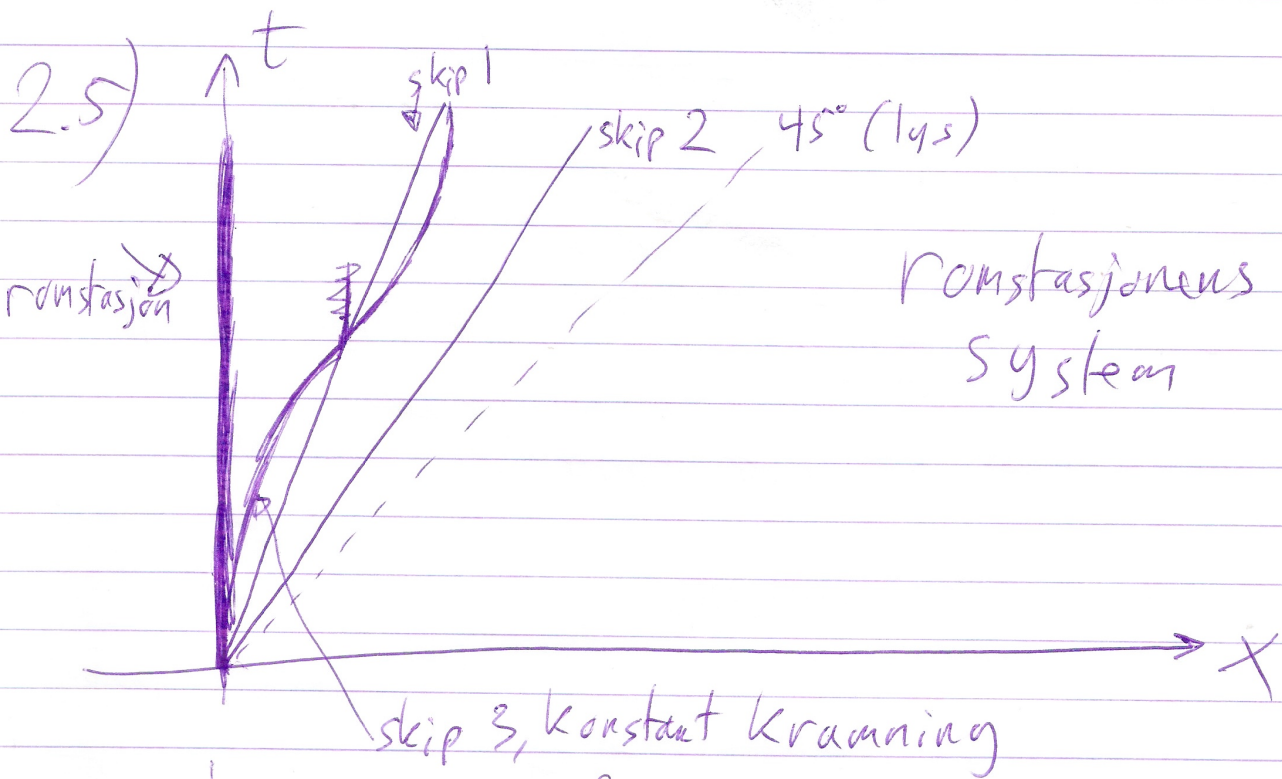 2.5)
t
skip 1
skip 2
45° (lys)
romstasjon
romstasjonens
system
X
skip 3, konstant krumning